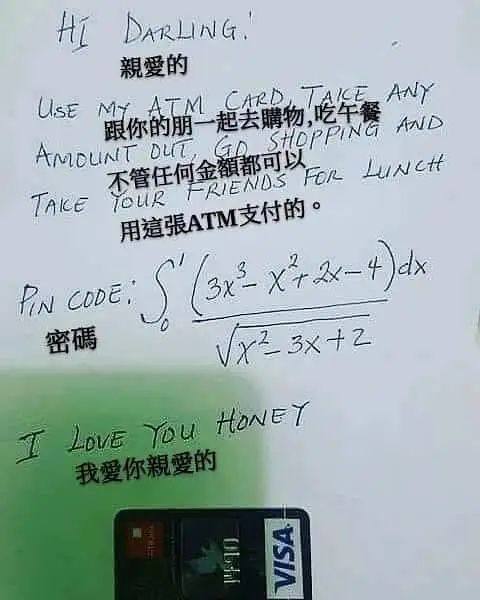 HI DARLING!
親愛的
USE MY ATM CARD, TAKE ANY
跟你的朋一起去購物,吃午餐
AMOUNT OUT, GO SHOPPING AND
不管任何金額都可以
TAKE YOUR FRIENDS FOR LUNCH
用這張ATM支付的。
PIN CODE: ∫₀¹ (3x³ - x² + 2x - 4)dx
√x² - 3x + 2
密碼
I LOVE YOU HONEY
我愛你親愛的
VISA